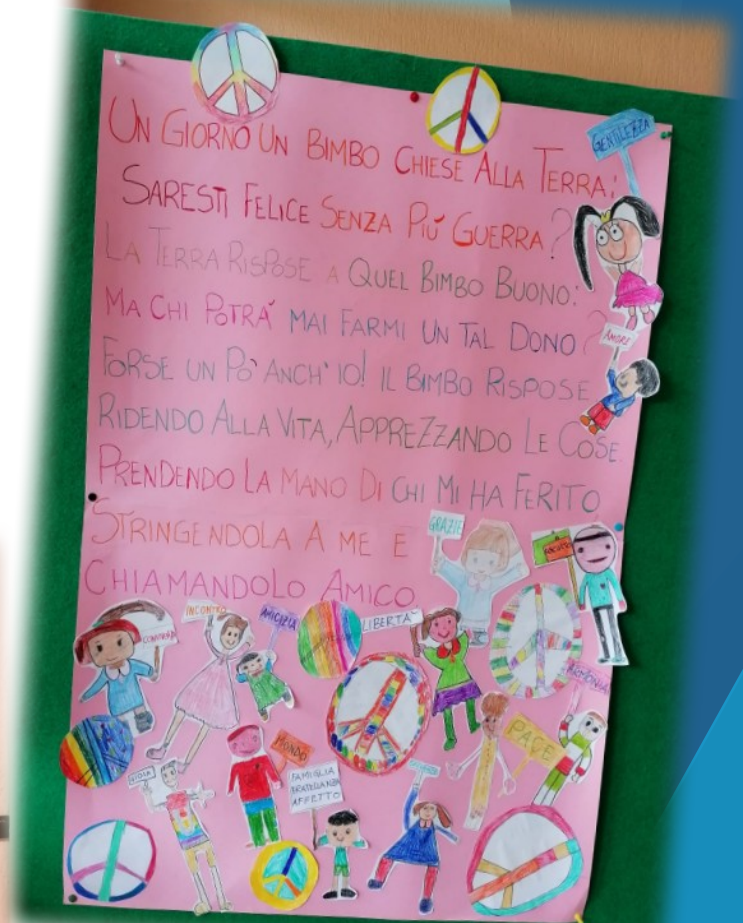 UN GIORNO UN BIMBO CHIESE ALLA TERRA:
GENTILEZZA
SARESTI FELICE SENZA PIÚ GUERRA?
LA TERRA RISPOSE A QUEL BIMBO BUONO:
MA CHI POTRÁ MAI FARMI UN TAL DONO?
AMORE
FORSE UN PO' ANCH' IO! IL BIMBO RISPOSE
RIDENDO ALLA VITA, APPREZZANDO LE COSE.
PRENDENDO LA MANO DI CHI MI HA FERITO
STRINGENDOLA A ME E
GRAZIE
CHIAMANDOLO AMICO
INCONTRO
AMICIZIA
LIBERTA'
ARMONIA
MONDO
PACE
GIOIA
FAMIGLIA
FRATELLANZA
AFFETTO